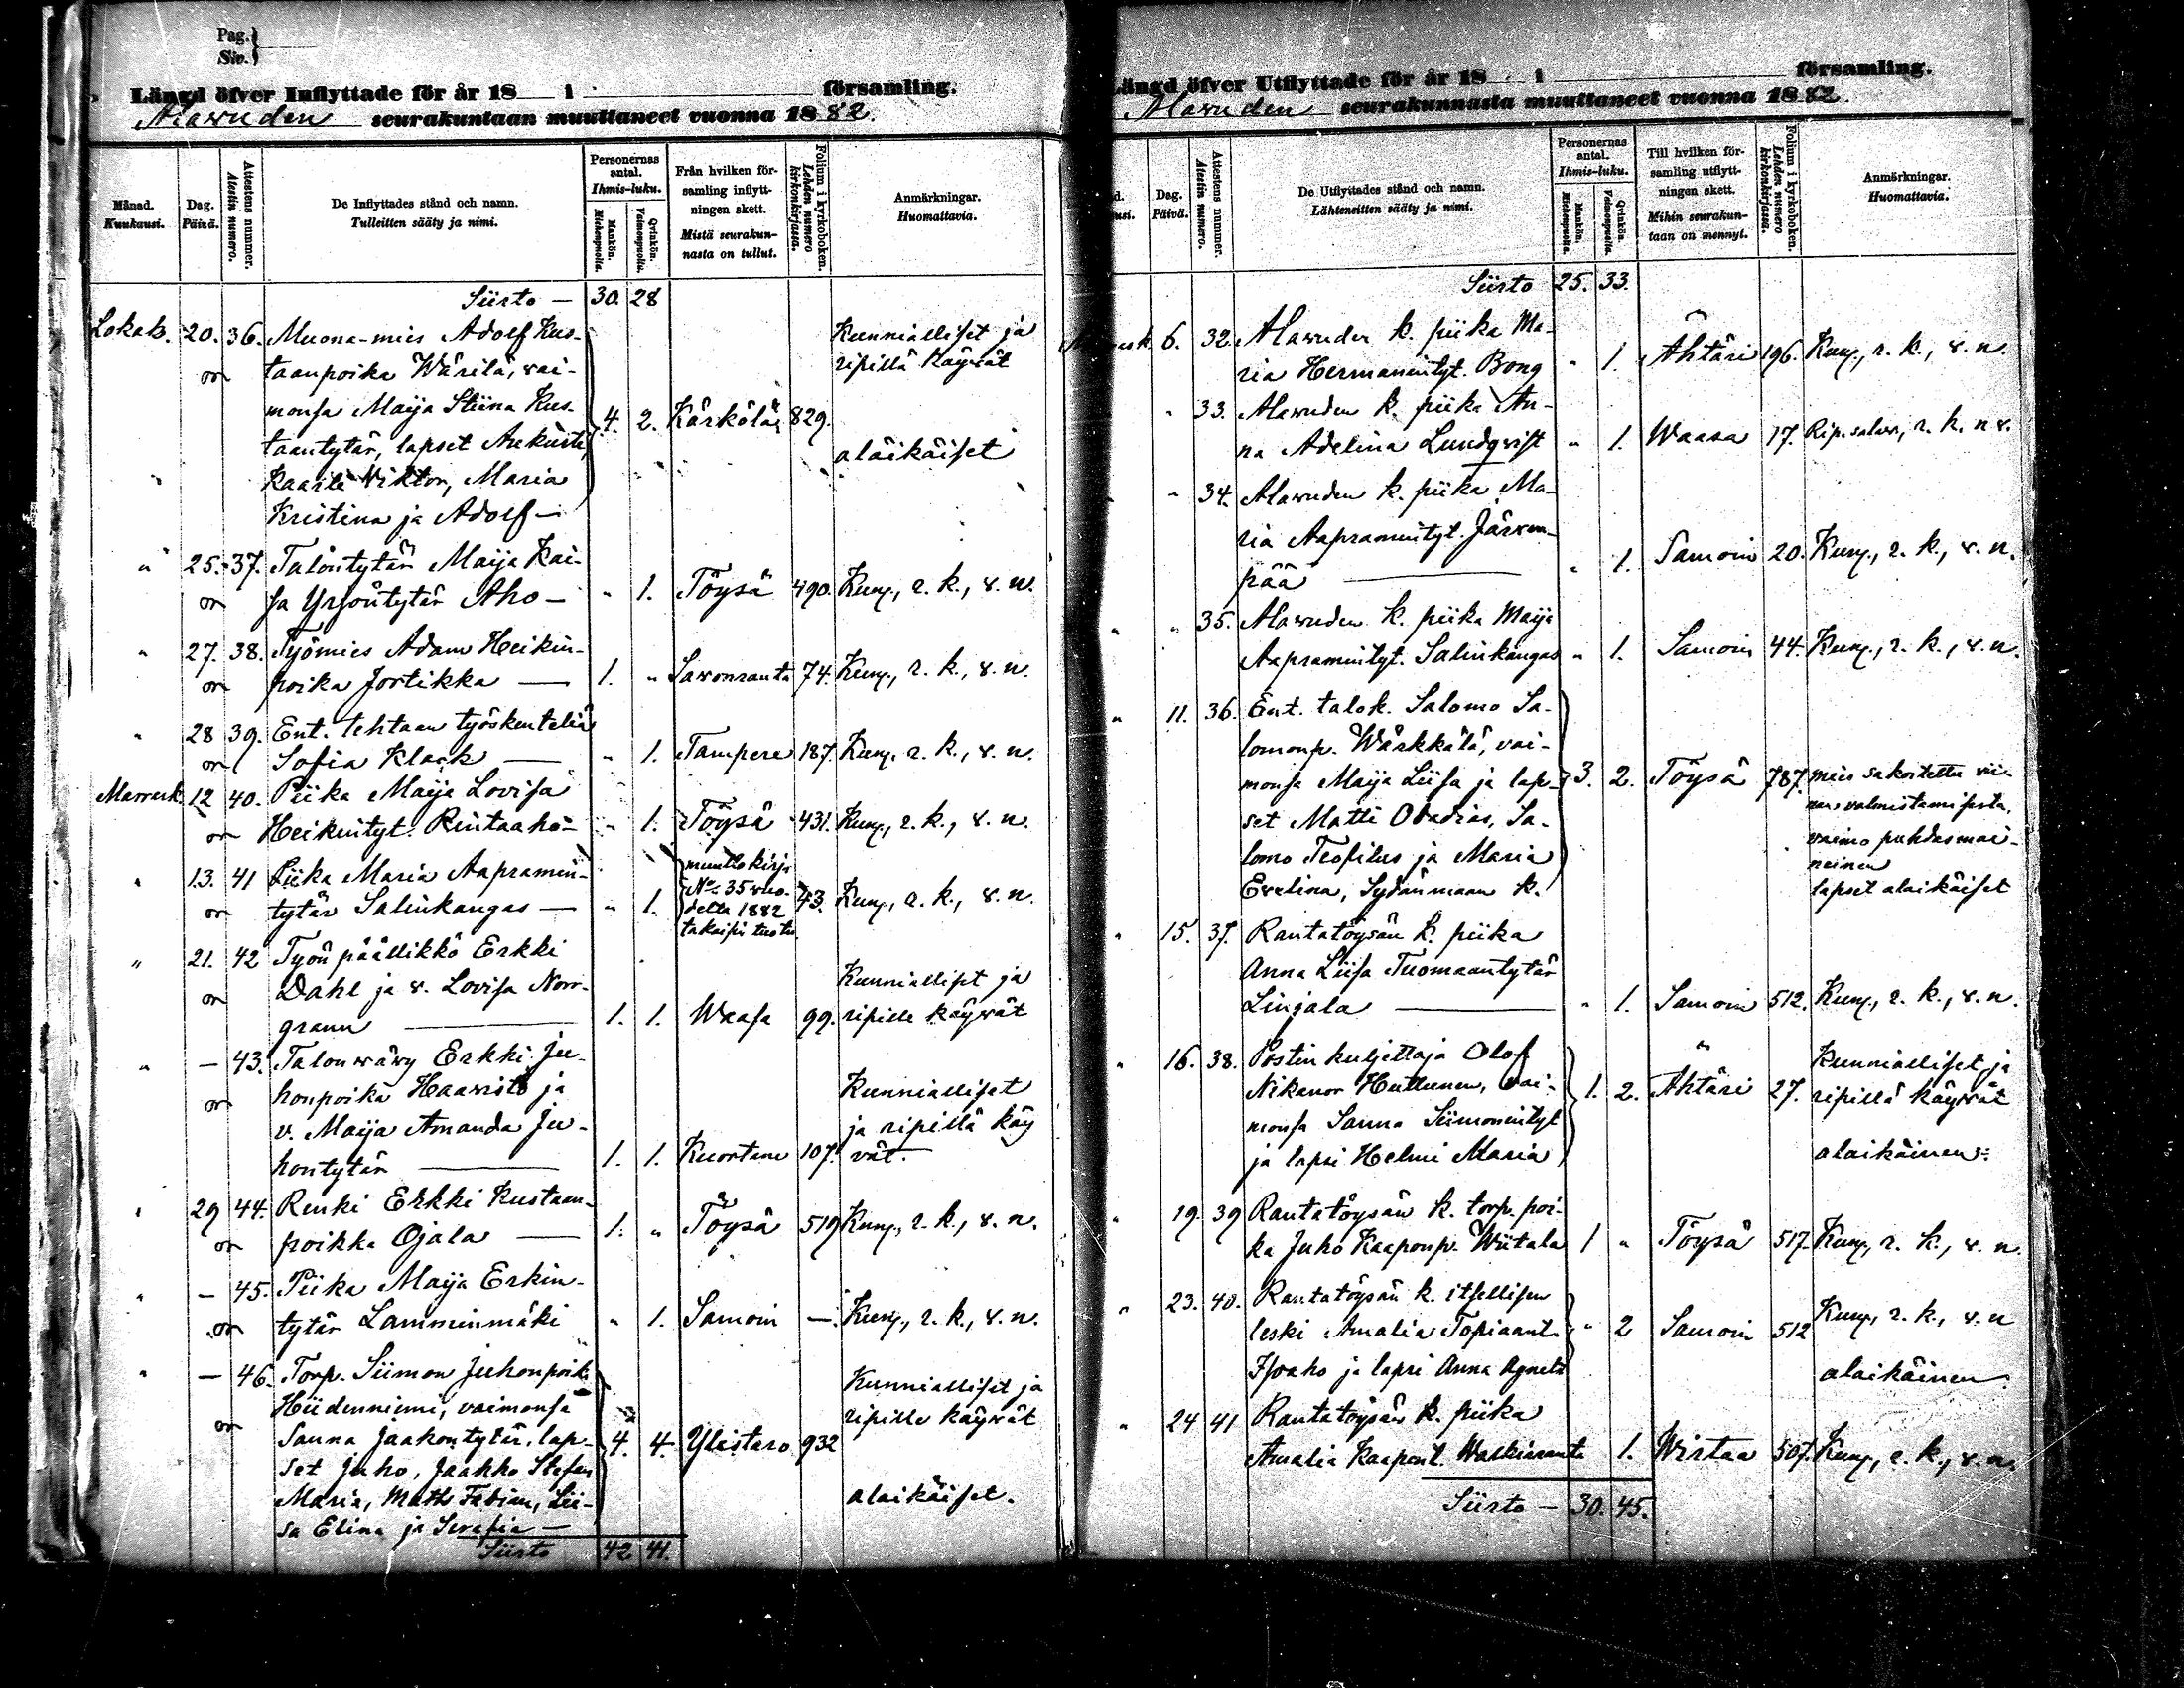 Pag.
Siv.
Längd öfver Inflyttade för år 18 i församling.
Alawuden seurakuntaan muuttaneet vuonna 1882.
Månad. Kuukausi.
Dag. Päivä.
Attestens nummer. Atestin numero.
De Inflyttades stånd och namn. Tulleitten sääty ja nimi.
Personernas antal. Ihmis-luku.
Mankön. Miehenpuolia.
Qvinkön. Vaimonpuolia.
Från hvilken församling inflyttningen skett. Mistä seurakunnasta on tullut.
Folium i kyrkoboken. Lehden numero kirkonkirjassa.
Anmärkningar. Huomattavia.
Siirto — 30. 28
Lokak. 20. 36. Muona-mies Adolf Kus- Kunnialliset ja
taanpoika Wärilä, vai- ripillä käyvät
monsa Maija Stiina Kus-
taantytär, lapset Aukusti, 4. 2. Kärkölä 829. alaikäiset
Kaarle Viktor, Maria
Kristina ja Adolf —
" 25. 37. Talontytär Maija Kai-
sa Yrjöntytär Aho — " 1. Töysä 490. Kuny., r. k., v. n.
" 27. 38. Työmies Adam Heikin-
poika Jortikka — 1. " Savonranta 74. Kuny., r. k., v. n.
" 28 39. Ent. tehtaan työskenteliä
Sofia Klack — " 1. Tampere 187. Kuny. r. k., v. n.
Marrask. 12 40. Piika Maija Lovisa
Heikintyt. Rintaaho — " 1. Töysä 431. Kuny., r. k., v. n.
" 13. 41 Piika Maria Aapramin- muuttokirja
tytär Salinkangas — " 1. No 35 vuo- 43. Kuny., r. k., v. n.
delta 1882
takaisin tuotu
" 21. 42 Työnpäällikkö Erkki
Dahl ja v. Lovisa Norr- Kunnialliset ja
grann — 1. 1. Waasa 99. ripille käyvät
" — 43. Talonvävy Erkki Ju-
honpoika Haavisto ja Kunnialliset
v. Maija Amanda Ju- ja ripillä käy
hontytär — 1. 1. Kuortane 107. vät.
" 29 44. Renki Erkki Kustaan-
poikka Ojala — 1. " Töysä 519 Kuny., r. k., v. n.
" — 45. Piika Maija Erkin-
tytär Lamminmäki " 1. Samoin —. Kuny., r. k., v. n.
" — 46. Torp. Siimon Juhonpoik.
Hiidenniemi, vaimonsa Kunnialliset ja
Sanna Jaakontytär, lap- ripille käyvät
set Juho, Jaakko Stefan 4. 4. Ylistaro 932
Maria, Matts Fabian, Lii- alaikäiset.
sa Elina ja Serafia —
Siirto 42 41.
Längd öfver Utflyttade för år 18 i församling.
Alawuden seurakunnasta muuttaneet vuonna 1882.
Dag. Päivä.
Attestens nummer. Atestin numero.
De Utflyttades stånd och namn. Lähteneitten sääty ja nimi.
Personernas antal. Ihmis-luku.
Mankön. Miehenpuolia.
Qvinkön. Vaimonpuolia.
Till hvilken församling utflyttningen skett. Mihin seurakuntaan on mennyt.
Folium i kyrkoboken. Lehden numero kirkonkirjassa.
Anmärkningar. Huomattavia.
Siirto 25. 33.
6. 32. Alavuden k. piika Ma-
ria Hermannintyt. Bong " 1. Ähtäri 196. Kuny., r. k., v. n.
" 33. Alavuden k. piika An-
na Adelina Lundqvist " 1. Waasa 17. Rip. salav., r. k. n v.
" 34. Alavuden k. piika Ma-
ria Aapramintyt. Järven-
pää — " 1. Samoin 20. Kuny., r. k., v. n.
" " 35. Alavuden k. piika Maija
Aapramintyt. Salinkangas " 1. Samoin 44. Kuny., r. k., v. n.
" 11. 36. Ent. talok. Salomo Sa-
lomonp. Wärkkälä, vai-
monsa Maija Liisa ja lap- 3. 2. Töysä 787. mies sakoitettu vii-
set Matti Obadias, Sa- nan valmistamisesta,
lomo Teofilus ja Maria vaimo puhdasmai-
Evelina, Sydänmaan k. neinen
lapset alaikäiset
" 15. 37. Rantatöysän k. piika
Anna Liisa Tuomaantytär
Linjala — " 1. Samoin 512. Kuny., r. k., v. n.
" 16. 38. Postinkuljettaja Olof Kunnialliset ja
Nikanor Huttunen, vai- 1. 2. Ähtäri 27. ripillä käyvät
monsa Sanna Siimonintyt
ja lapsi Helmi Maria alaikäinen
" 19. 39 Rantatöysän k. torp. poi-
ka Juho Kaaponp. Wiitala 1 " Töysä 517. Kuny., r. k., v. n.
" 23. 40. Rantatöysän k. itsellisen
leski Amalia Topiaant. " 2 Samoin 512 Kuny., r. k., v. n
Isoaho ja lapsi Anna Agneta alaikäinen
" 24 41 Rantatöysän k. piika
Amalia Kaapont. 1. Wirtaa 507. Kuny., r. k., v. n.
Siirto — 30. 45.